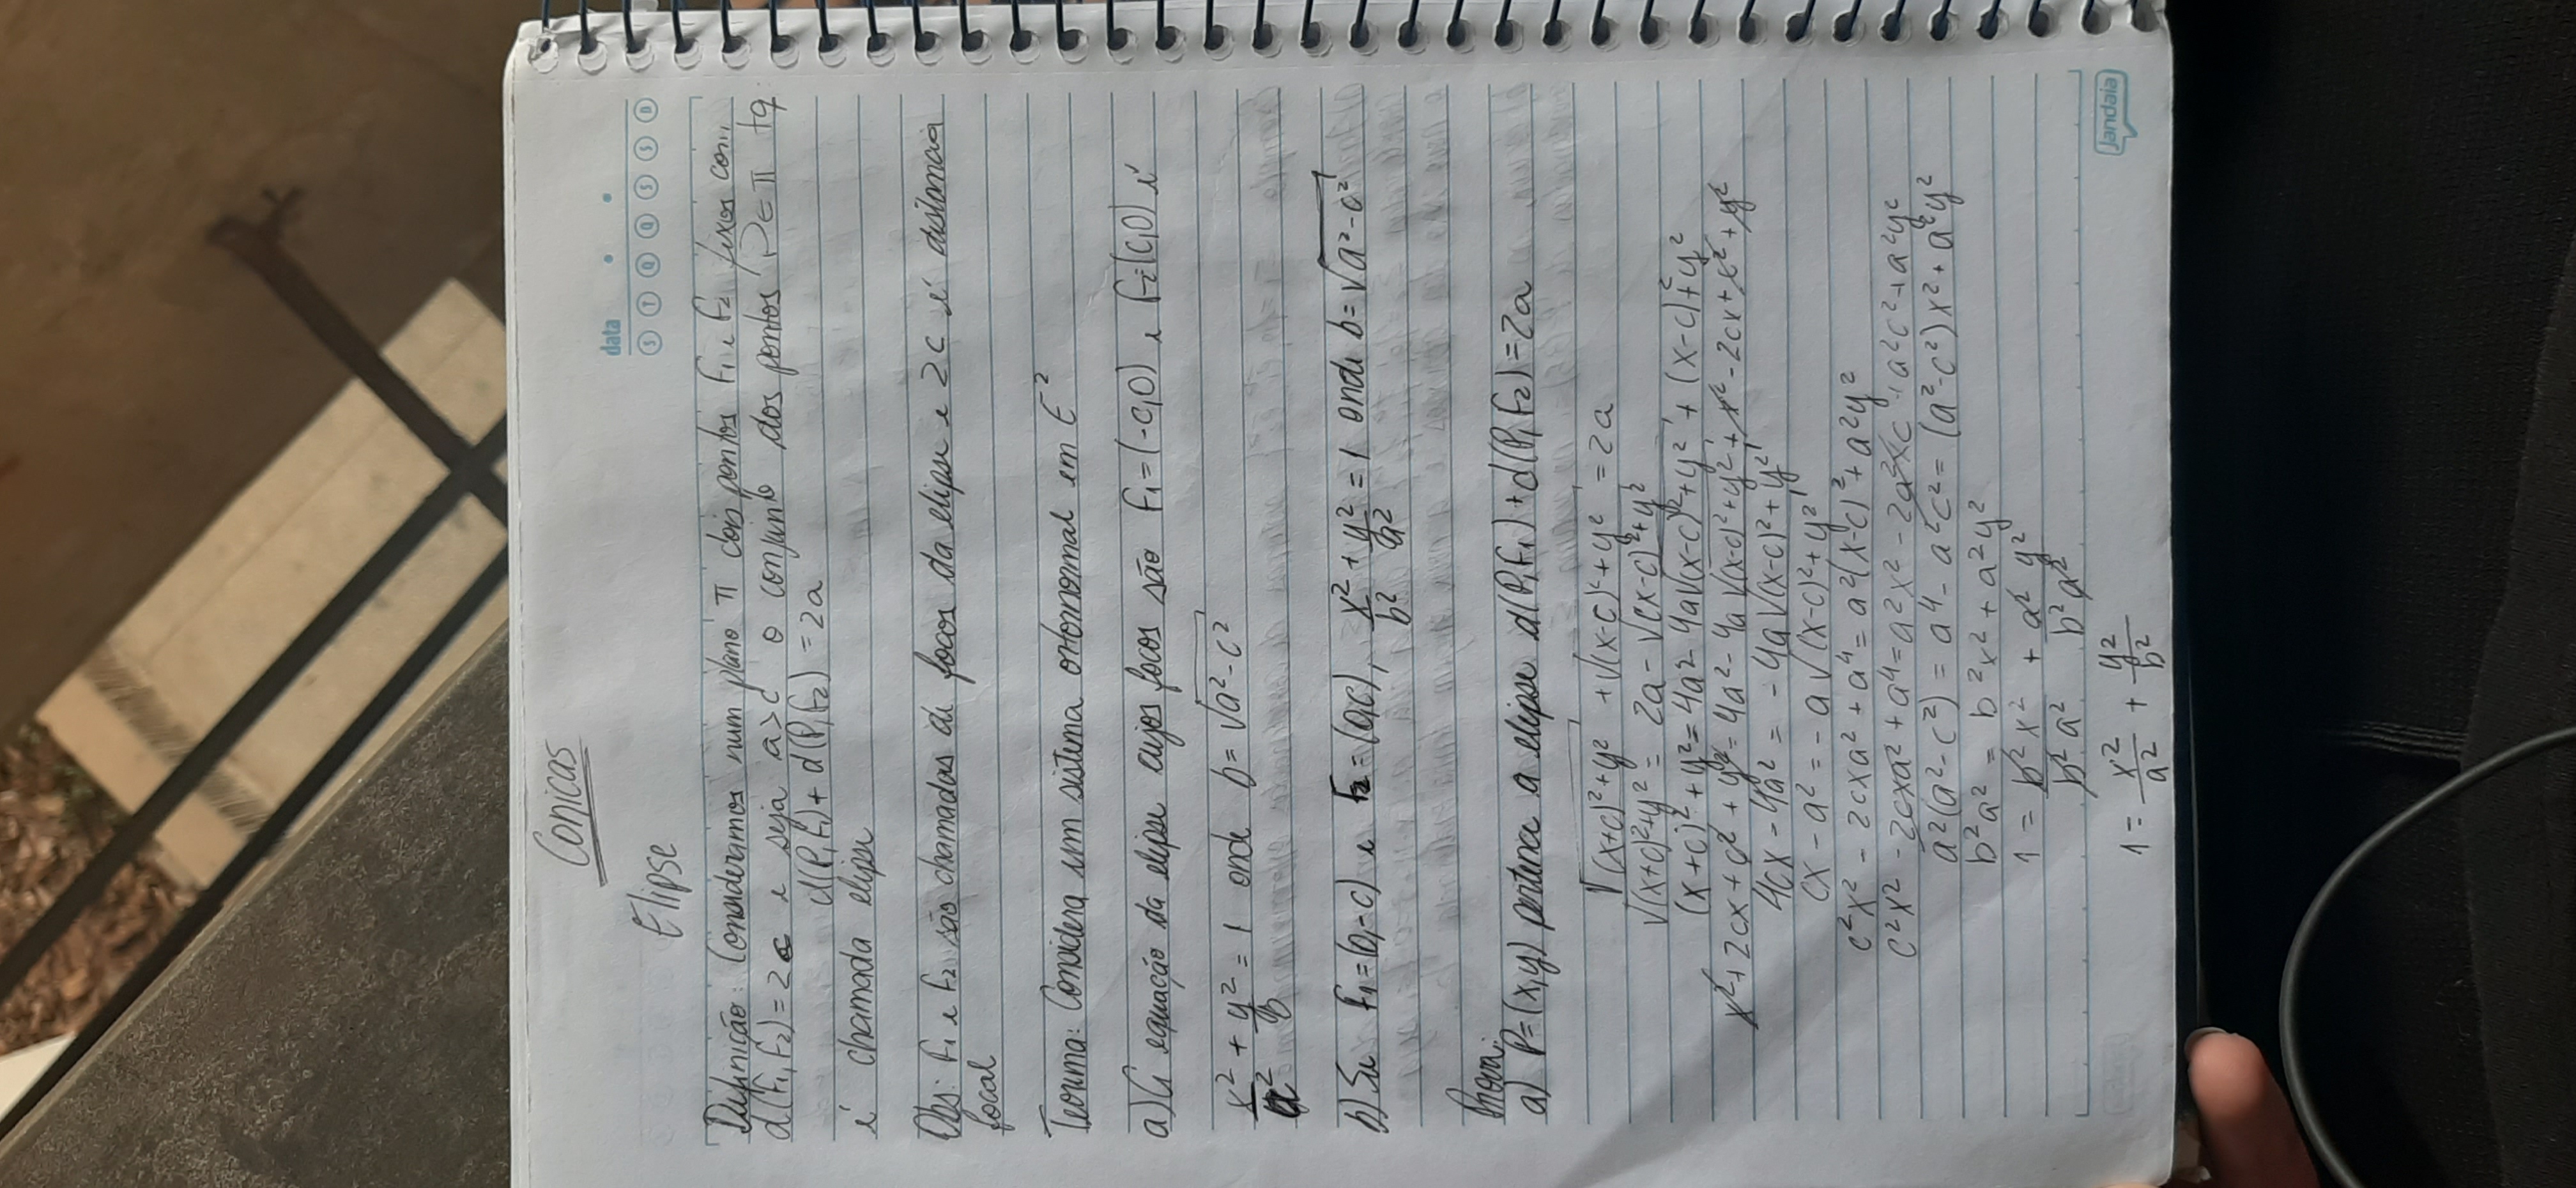 Conicas
data
S T Q Q S S D
Elipse
Definição: Consideramos num plano π dois pontos F₁ e F₂ fixos com
d(F₁,F₂)=2c e seja a>c o conjunto dos pontos P∈π tq
d(P,F₁)+d(P,F₂)=2a
é chamada elipse
Obs: F₁ e F₂ são chamadas de focos da elipse e 2c é distancia
focal
Teorema: Considera um sistema ortornormal em E²
a) A equação da elipse cujos focos são F₁=(-c,0) e F₂=(c,0) é
x²/a² + y²/b = 1 onde b=√(a²-c²)
b) Se F₁=(0,-c) e F₂=(0,c), x²/b² + y²/a² = 1 onde b=√(a²-c²)
Prova:
a) P=(x,y) pertence a elipse d(P,F₁)+d(P,F₂)=2a
√((x+c)²+y²) + √((x-c)²+y²) = 2a
√((x+c)²+y²) = 2a - √((x-c)²+y²)
(x+c)²+y² = 4a² - 4a√((x-c)²+y²) + (x-c)²+y²
x²+2cx+c²+y² = 4a² - 4a√((x-c)²+y²) + x² - 2cx + c² + y²
4cx - 4a² = -4a√((x-c)²+y²)
cx - a² = -a√((x-c)²+y²)
c²x² - 2cxa² + a⁴ = a²(x-c)² + a²y²
c²x² - 2cxa² + a⁴ = a²x² - 2a²xc + a²c² + a²y²
a²(a²-c²) = a⁴ - a²c² = (a²-c²)x² + a²y²
b²a² = b²x² + a²y²
1 = b²x²/b²a² + a²y²/b²a²
jandaia
1 = x²/a² + y²/b²